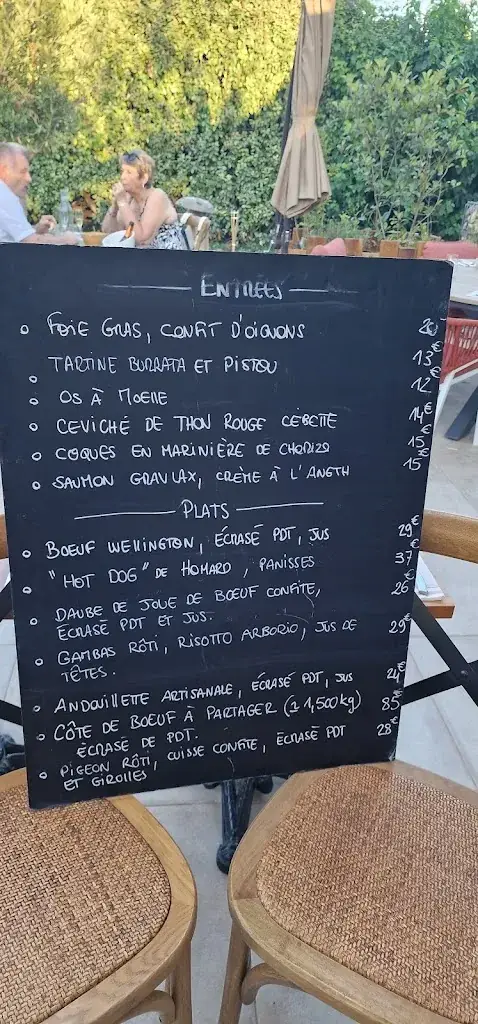 ENTRÉES
FOIE GRAS, CONFIT D'OIGNONS 20€
TARTINE BURRATA ET PISTOU 13€
OS À MOELLE 12€
CEVICHÉ DE THON ROUGE CEBETTE 14€
COQUES EN MARINIÈRE DE CHORIZO 15€
SAUMON GRAVLAX, CRÈME À L'ANETH 15€
PLATS
BOEUF WELLINGTON, ÉCRASÉ PDT, JUS 29€
"HOT DOG" DE HOMARD, PANISSES 37€
DAUBE DE JOUE DE BOEUF CONFITE, 26€
ÉCRASÉ PDT ET JUS.
GAMBAS RÔTI, RISOTTO ARBORIO, JUS DE 29€
TÊTES.
ANDOUILLETTE ARTISANALE, ÉCRASÉ PDT, JUS 24€
CÔTE DE BOEUF À PARTAGER (± 1,500kg) 85€
ÉCRASÉ DE PDT.
PIGEON RÔTI, CUISSE CONFITE, ÉCRASÉ PDT 28€
ET GIROLLES